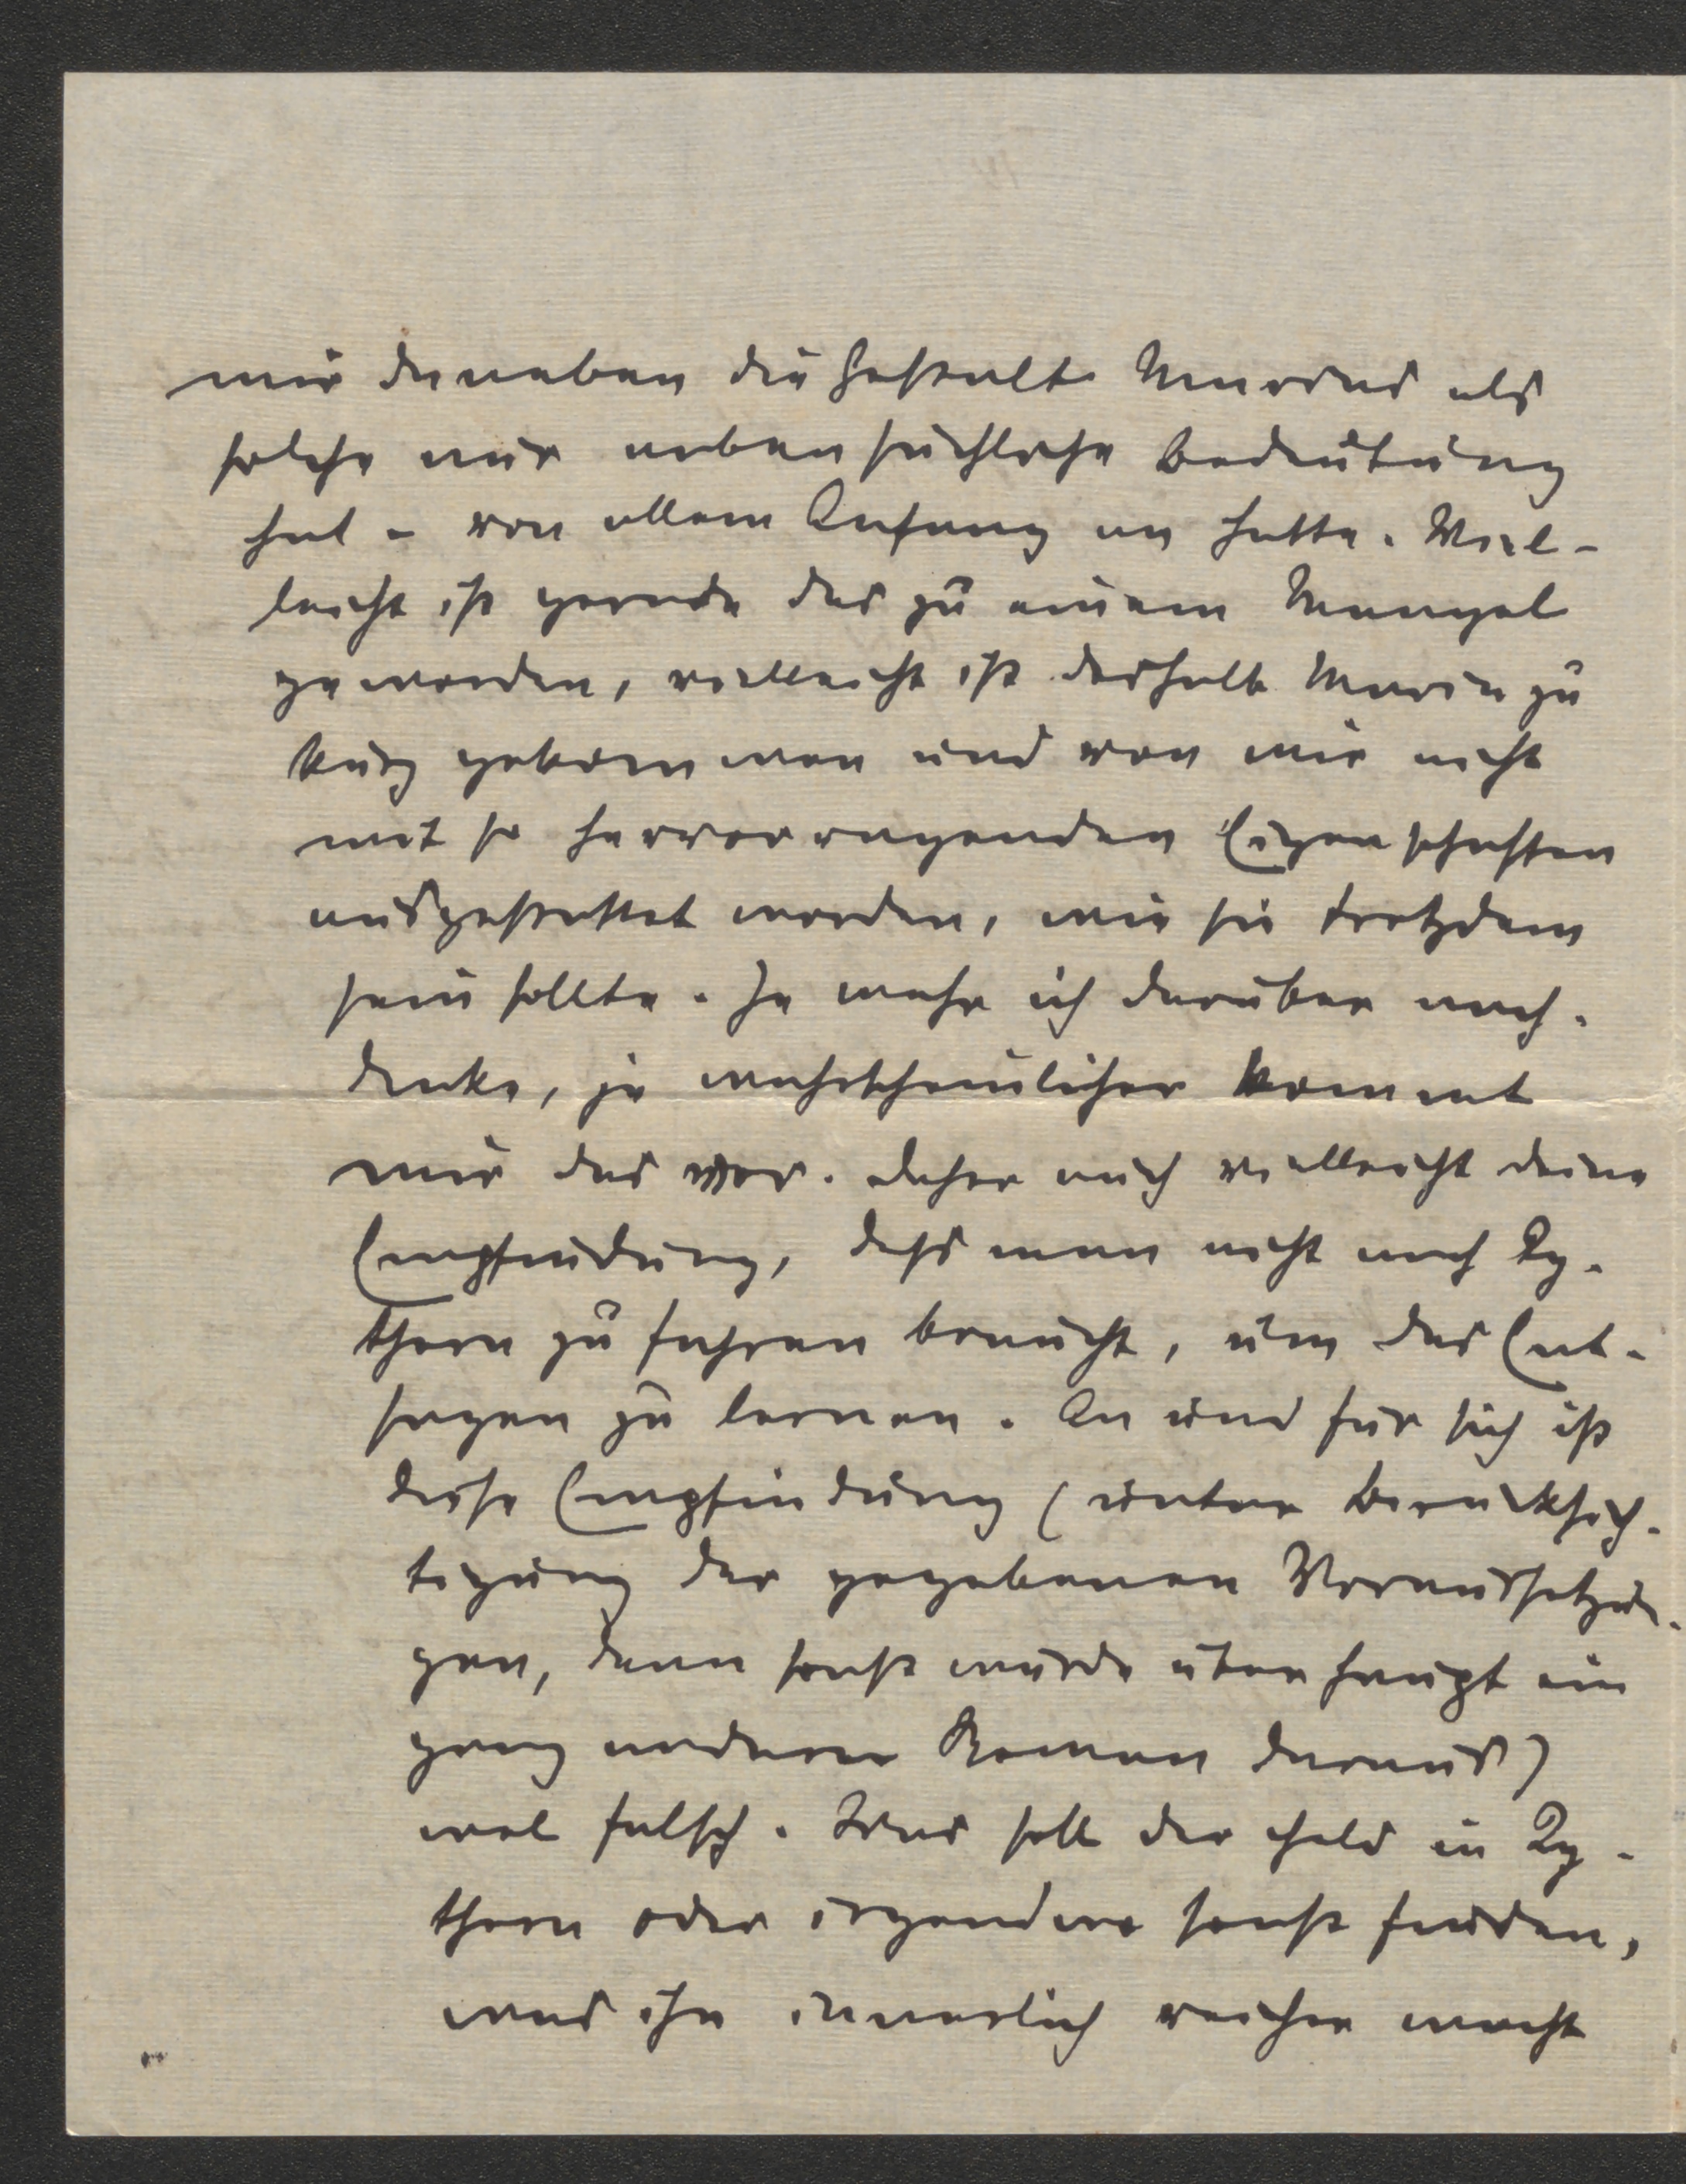 mir daneben die Gestalt Marias als
solche nur nebensächliche Bedeutung
hat – von allem Anfang an hatte. Viel-
leicht ist gerade das zu einem Mangel
geworden, vielleicht ist deshalb Maria zu
kurz gekommen und von mir nicht
mit so hervorragenden Eigenschaften
ausgestattet worden, wie sie trotzdem
sein sollte. Je mehr ich darüber nach-
denke, je wahrscheinlicher kommt
mir das vor. Daher auch vielleicht deine
Empfindung, dass man nicht nach Ky-
thera zu fahren braucht, um das Ent-
sagen zu lernen. An und für sich ist
diese Empfindung (unter Berücksich-
tigung der gegebenen Voraussetzun-
gen, denn sonst würde überhaupt ein
ganz anderer Roman daraus)
wol falsch. Was soll der Held in Ky-
thera oder irgendwo sonst finden,
was ihn innerlich reicher macht